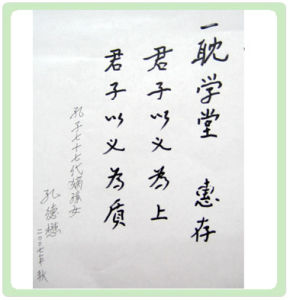 一耽学堂 惠存
君子以义为上
君子以义为质
孔子七十七代嫡孙女
孔德懋
二〇〇七年秋